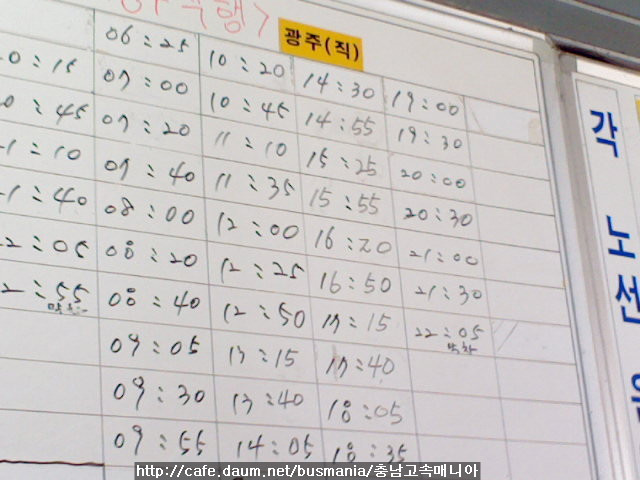 행>
광주(직)
06:25 10:20 14:30 19:00
07:00 10:45 14:55 19:30
07:20 11:10 15:25 20:00
07:40 11:35 15:55 20:30
08:00 12:00 16:20 21:00
08:20 12:25 16:50 21:30
08:40 12:50 17:15 22:05 막차
09:05 13:15 17:40
09:30 13:40 18:05
09:55 14:05 18:35
0:15
0:45
1:10
1:40
2:05
2:55
각
노
선
http://cafe.daum.net/busmania/충남고속매니아